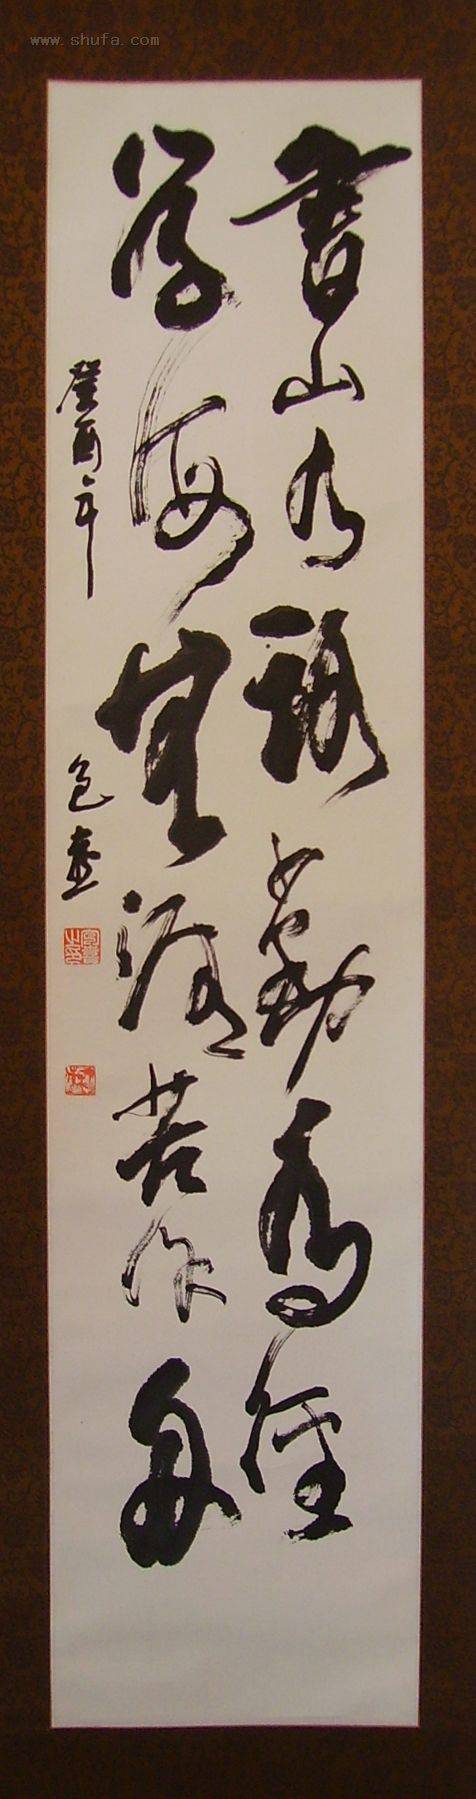 www.shufa.com
書山有路勤為徑
學海無涯苦作舟
癸酉年